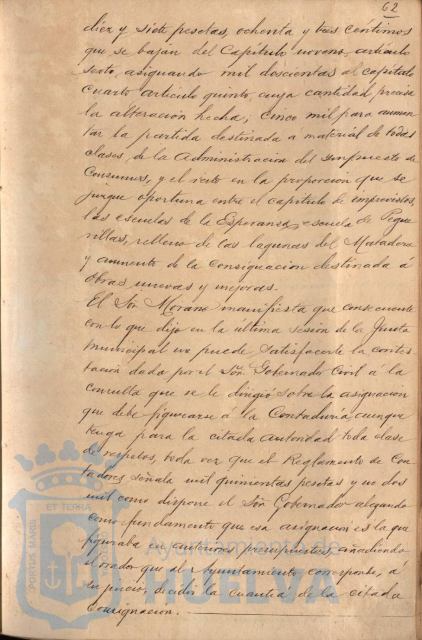 62
diez y siete pesetas, ochenta y tres céntimos
que se bajan del Capítulo noveno, artículo
sexto, asignando mil doscientas al capítulo
cuarto artículo quinto, cuya cantidad precisa
la alteración hecha; cinco mil para aumen
tar la partida destinada a material de todas
clases, de la Administracion del Impuesto de
Consumos, y el resto en la proporcion que se
juzgue oportuna entre el capitulo de imprevistos,
las escuelas de la Esperanza, escuela de Pegue
rillas, relleno de las lagunas del Matadero
y aumento de la consignacion destinada á
obras nuevas y mejoras.
El Sor. Morano manifiesta que consecuente
con lo que dijo en la ultima sesion de la Junta
Municipal no puede satisfacerle la contes
tacion dada por el Sor. Gobernador Civil á la
consulta que se le dirigió sobre la asignacion
que debe figurarse á la Contaduria aunque
tenga para la citada autoridad toda clase
de respetos, toda vez que el Reglamento de Con
tadores señala mil quinientas pesetas y no dos
mil como dispone el Sor. Gobernador alegando
como fundamento que esa asignacion es la que
figuraba en anteriores presupuestos, añadiendo
el orador que al Ayuntamiento corresponde, á
su juicio, decidir la cuantía de la citada
consignación.
PORTUS MARIS ET TERRÆ
Ayuntamiento de
HUELVA